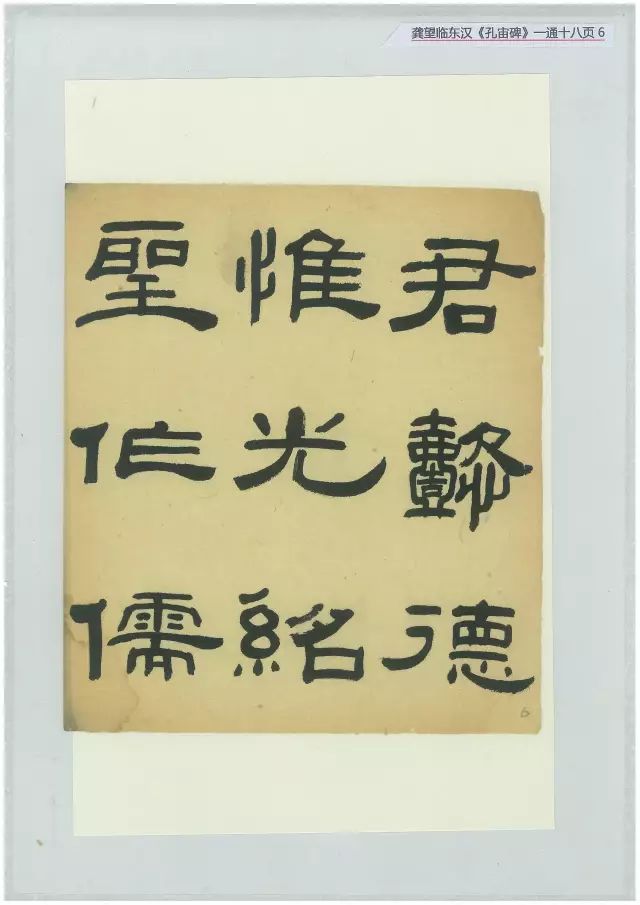 龚望临东汉《孔宙碑》一通十八页 6
君懿德
惟光紹
聖作儒
6